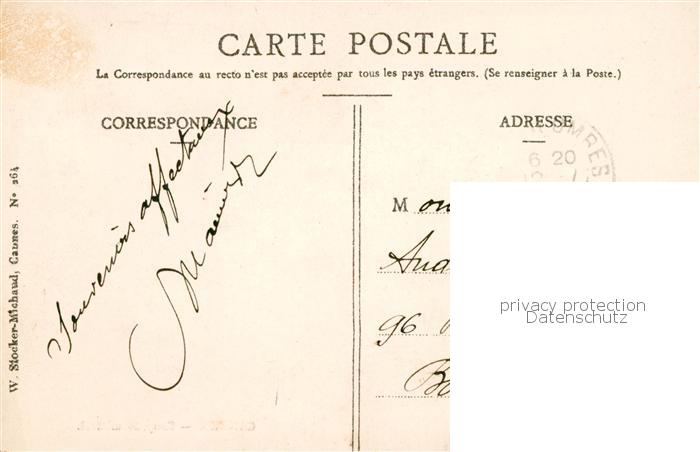 CARTE POSTALE
La Correspondance au recto n'est pas acceptée par tous les pays étrangers. (Se renseigner à la Poste.)
CORRESPONDANCE
Souvenirs affectueux
W. Stocker-Michaud, Cannes. Nº 264
ADRESSE
6 20
M on
96
privacy protection
Datenschutz